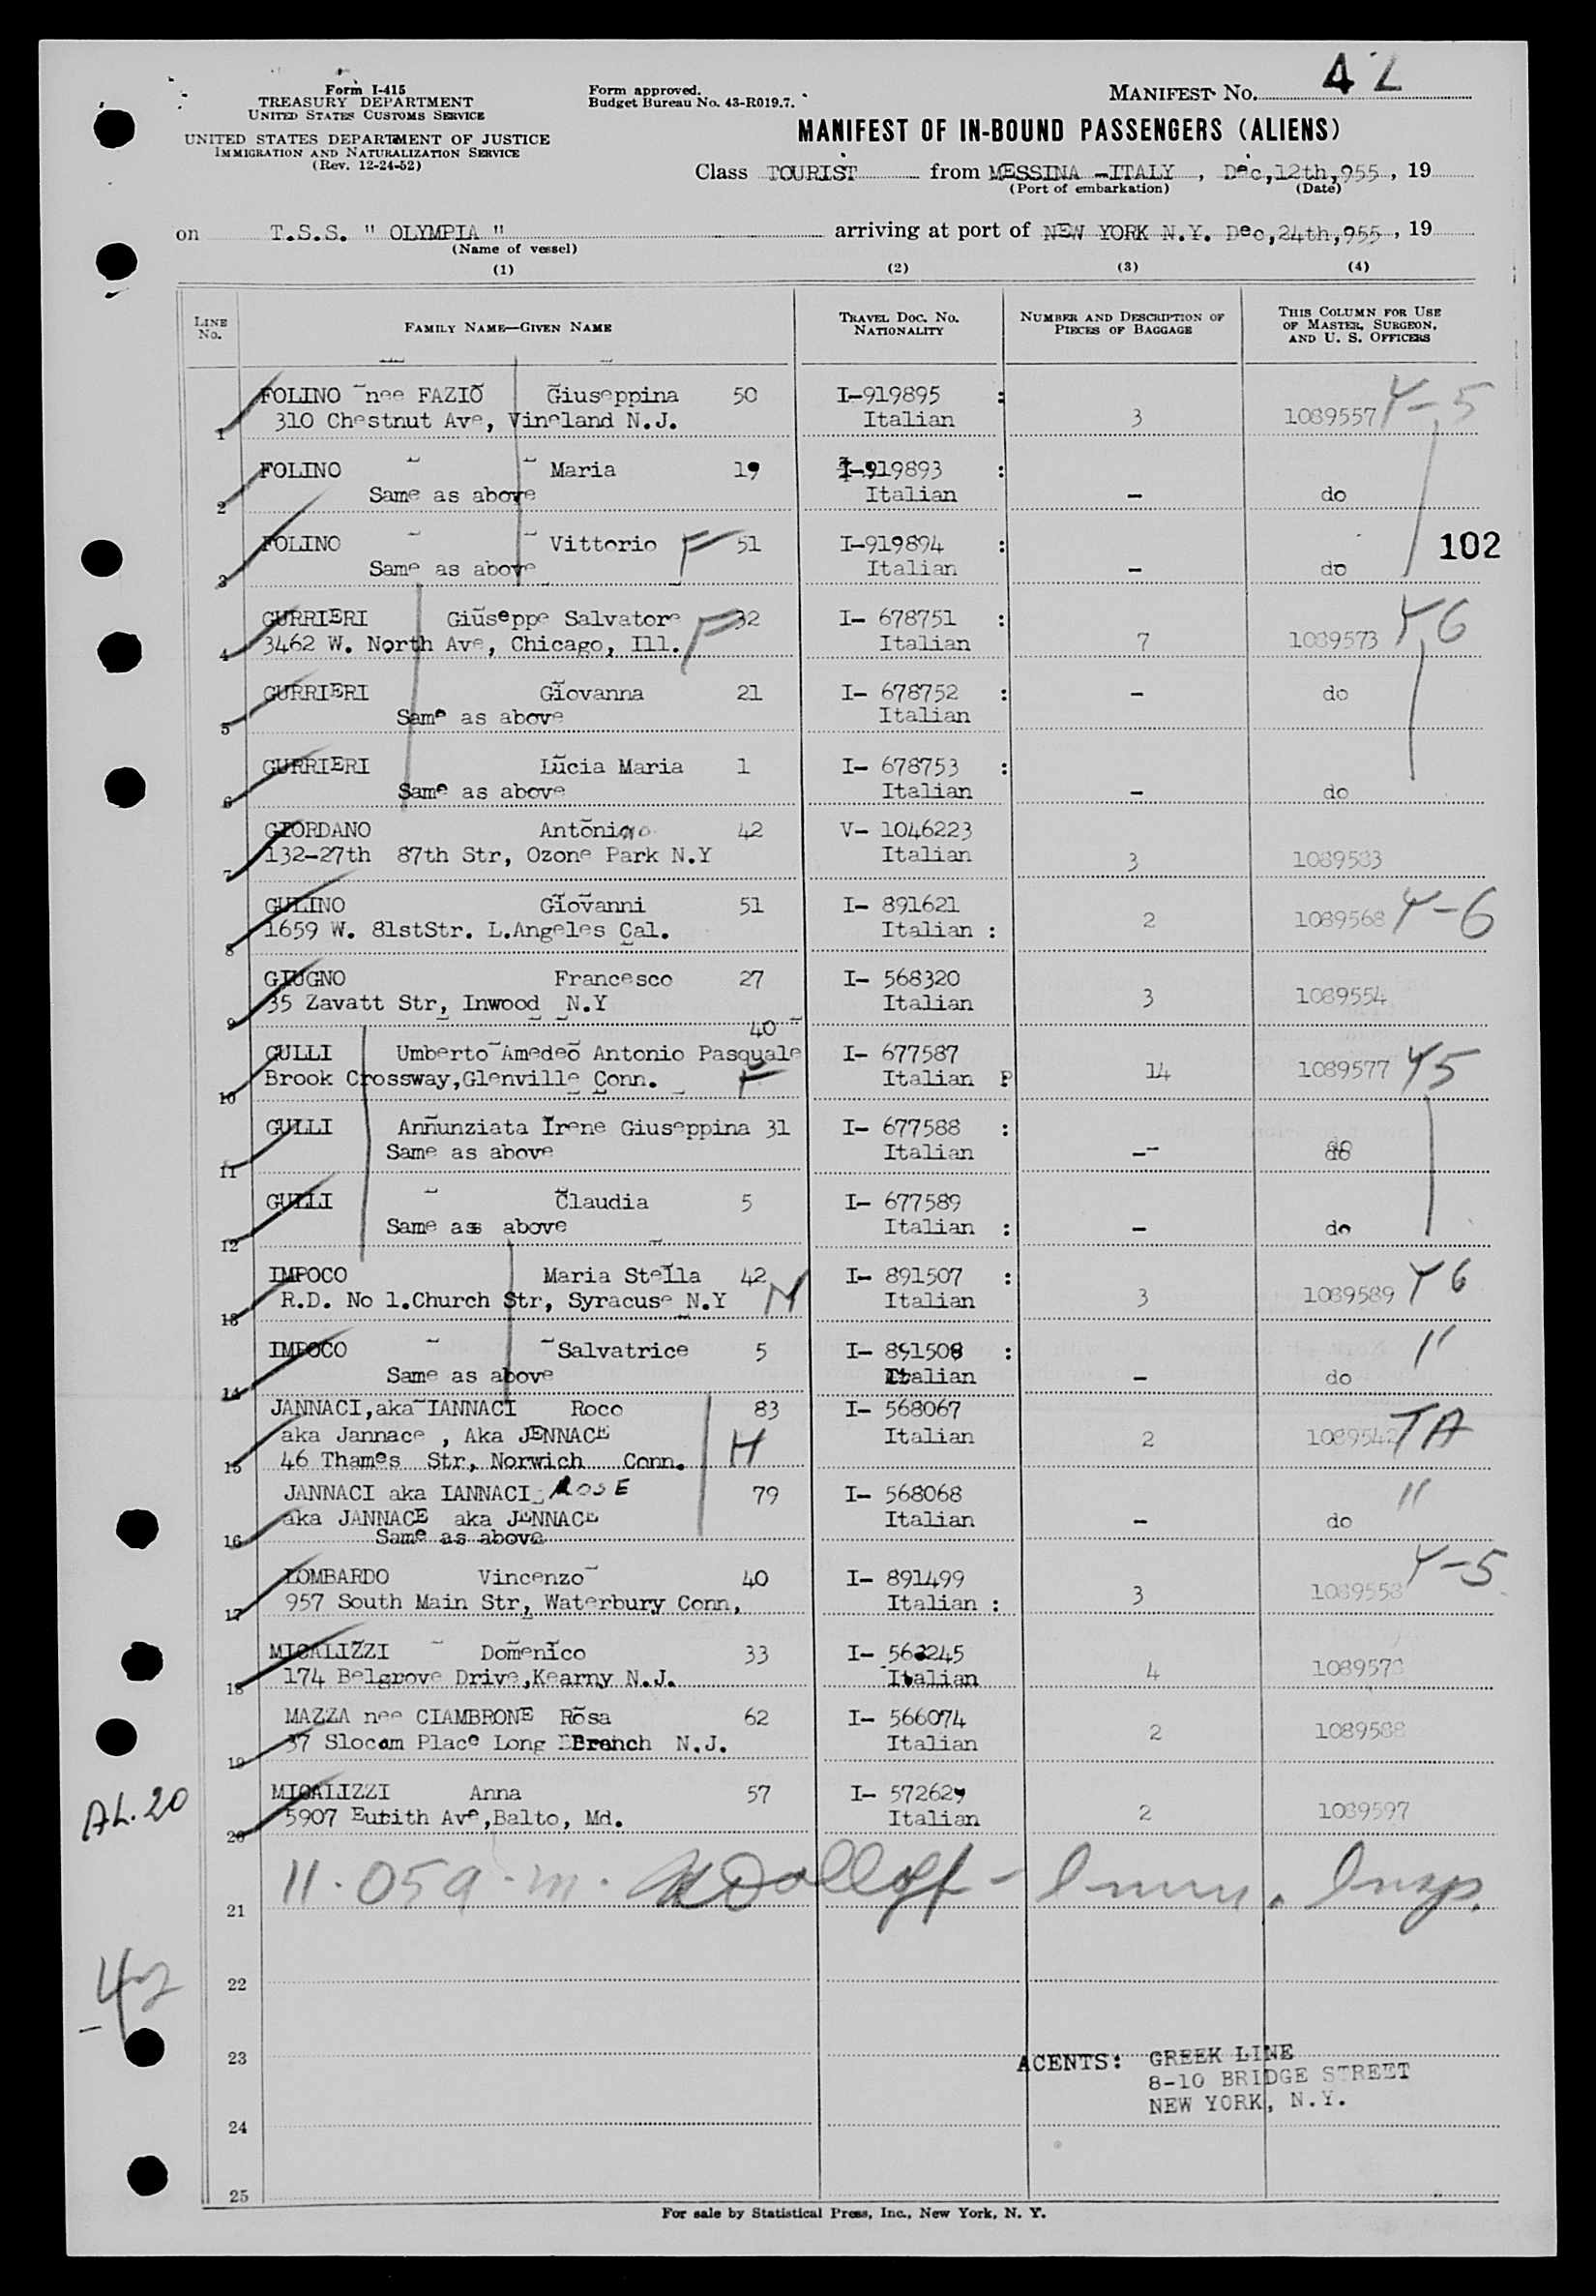 Form I-415
TREASURY DEPARTMENT
UNITED STATES CUSTOMS SERVICE
UNITED STATES DEPARTMENT OF JUSTICE
IMMIGRATION AND NATURALIZATION SERVICE
(Rev. 12-24-52)
Form approved.
Budget Bureau No. 43-R019.7.
MANIFEST No. 42
MANIFEST OF IN-BOUND PASSENGERS (ALIENS)
Class TOURIST from MESSINA -ITALY , Dec,12th,955 , 19
(Port of embarkation) (Date)
on T.S.S. " OLYMPIA " arriving at port of NEW YORK N.Y. Dec,24th,955 , 19
(Name of vessel)
(1) (2) (3) (4)
LINE No. FAMILY NAME—GIVEN NAME TRAVEL DOC. NO. NATIONALITY NUMBER AND DESCRIPTION OF PIECES OF BAGGAGE THIS COLUMN FOR USE OF MASTER, SURGEON, AND U. S. OFFICERS
FOLINO nee FAZIO Giuseppina 50 I-919895 :
1 310 Chestnut Ave, Vineland N.J. Italian 3 1089557 Y-5
FOLINO Maria 19 I-919893 :
2 Same as above Italian - do
FOLINO Vittorio F 51 I-919894 : 102
3 Same as above Italian - do
GURRIERI Giuseppe Salvatore 32 I- 678751 :
4 3462 W. North Ave, Chicago, Ill. F Italian 7 1089573 Y6
GURRIERI Giovanna 21 I- 678752 : - do
5 Same as above Italian
GURRIERI Lucia Maria 1 I- 678753 :
6 Same as above Italian - do
GIORDANO Antonino 42 V- 1046223
7 132-27th 87th Str, Ozone Park N.Y Italian 3 1089583
GULINO Giovanni 51 I- 891621
8 1659 W. 81stStr. L.Angeles Cal. Italian : 2 1089568 Y-6
GIUGNO Francesco 27 I- 568320
9 35 Zavatt Str, Inwood N.Y Italian 3 1089554
40
GULLI Umberto Amedeo Antonio Pasquale I- 677587
10 Brook Crossway,Glenville Conn. F Italian P 14 1089577 Y5
GULLI Annunziata Irene Giuseppina 31 I- 677588 :
11 Same as above Italian -- do
GULLI Claudia 5 I- 677589
12 Same as above Italian : - do
IMPOCO Maria Stella 42 I- 891507 :
13 R.D. No 1.Church Str, Syracuse N.Y M Italian 3 1089589 Y6
IMPOCO Salvatrice 5 I- 891508 : "
14 Same as above Italian - do
JANNACI,aka IANNACI Roco 83 I- 568067
aka Jannace , Aka JENNACE H Italian 2 1089542 TA
15 46 Thames Str, Norwich Conn.
JANNACI aka IANNACI ROSE 79 I- 568068 "
aka JANNACE aka JENNACE Italian - do
16 Same as above
LOMBARDO Vincenzo 40 I- 891499 Y-5
17 957 South Main Str, Waterbury Conn, Italian : 3 1089558
MICALIZZI Domenico 33 I- 562245
18 174 Belgrove Drive,Kearny N.J. Italian 4 1089578
MAZZA nee CIAMBRONE Rosa 62 I- 566074
19 37 Slocom Place Long Branch N.J. Italian 2 1089588
MICALIZZI Anna 57 I- 572629
20 5907 Eutith Ave,Balto, Md. Italian 2 1089597
AL.20
21 11.05 a.m. - Imm. Insp.
22
42
23 AGENTS: GREEK LINE
8-10 BRIDGE STREET
NEW YORK, N.Y.
24
25
For sale by Statistical Press, Inc., New York, N. Y.